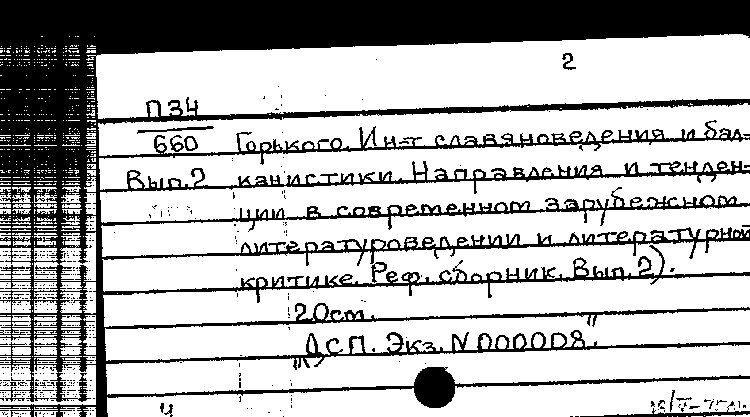 2
П34
660 Горького. Ин-т славяноведения и бал-
Вып.2 канистики. Направления и тенден-
ции в современном зарубежном
литературоведении и литературной
критике. Реф. сборник. Вып. 2).
20см.
„ДСП. Экз. N 000008."
4